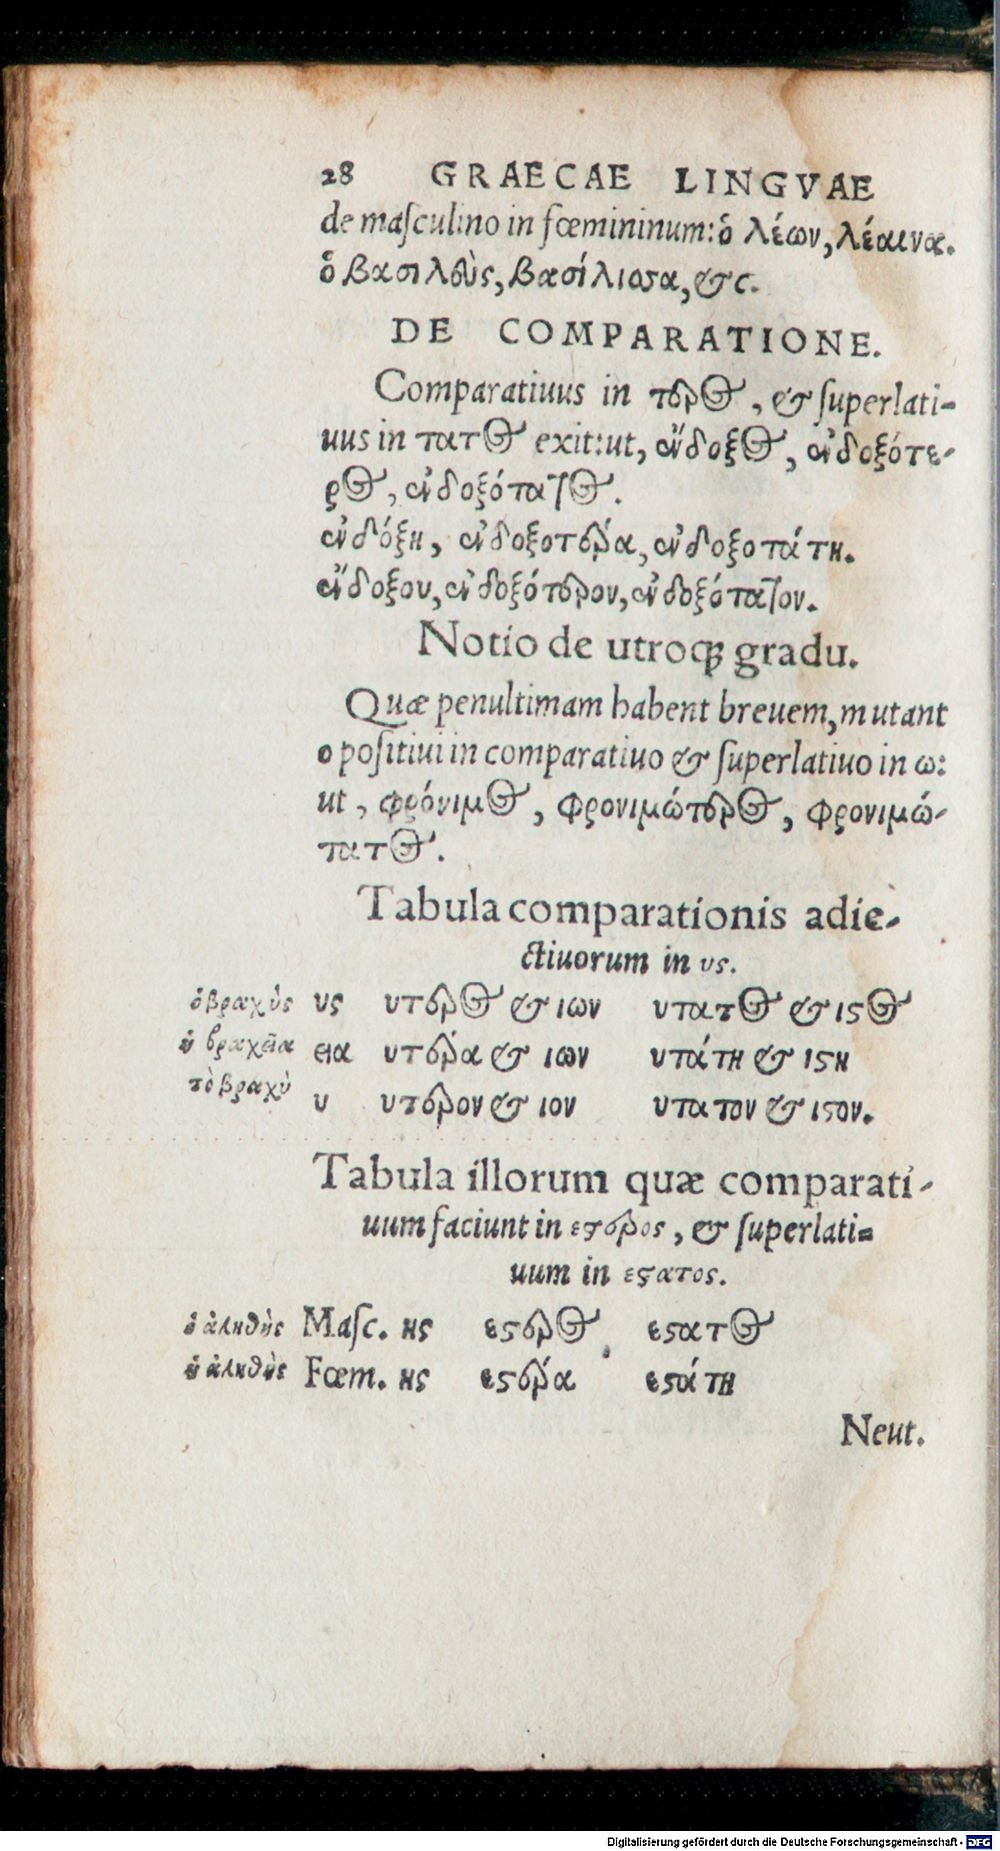 28 GRAECAE LINGVAE
de masculino in fœmininum: ὁ λέων, λέαινα.
ὁ βασιλεὺς, βασίλισσα, &c.
DE COMPARATIONE.
Comparatiuus in τερος, & superlati-
uus in τατος exit: ut, ἔνδοξος, ἐνδοξότε-
ρος, ἐνδοξότατος.
ἐνδόξη, ἐνδοξοτέρα, ἐνδοξοτάτη.
ἔνδοξου, ἐνδοξότερον, ἐνδοξότατον.
Notio de utroq; gradu.
Quæ penultimam habent breuem, mutant
o positiui in comparatiuo & superlatiuo in ω:
ut, φρόνιμος, φρονιμώτερος, φρονιμώ-
τατος.
Tabula comparationis adie-
ctiuorum in υς.
ὁ βραχὺς υς υτερος & ιων υτατος & ιστος
ἡ βραχεῖα εια υτέρα & ιων υτάτη & ιστη
τὸ βραχὺ υ υτερον & ιον υτατον & ιστον.
Tabula illorum quæ comparati-
uum faciunt in εστερος, & superlati-
uum in εστατος.
ὁ ἀληθὴς Masc. ης εστερος εστατος
ἡ ἀληθὴς Fœm. ης εστέρα εστάτη
Neut.
Digitalisierung gefördert durch die Deutsche Forschungsgemeinschaft - DFG